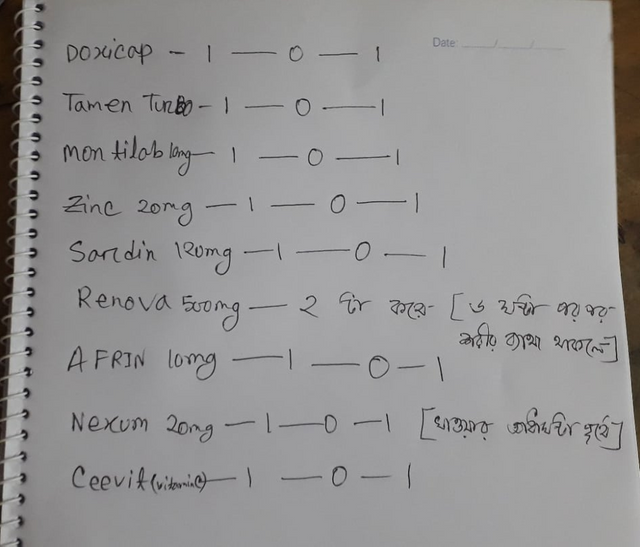 Date:
Doxicap - 1 — 0 — 1
Tamen Turbo - 1 — 0 — 1
montilab 10mg — 1 — 0 — 1
Zinc 20mg — 1 — 0 — 1
Sardin 120mg — 1 — 0 — 1
Renova 500mg — ২ টা করে- [৬ ঘন্টা পর পর
শরীর ব্যাথা থাকলে]
AFRIN 10mg — 1 — 0 — 1
Nexum 20mg — 1 — 0 — 1 [খাওয়ার আধাঘন্টা পূর্বে]
Ceevit (vitamin C) — 1 — 0 — 1